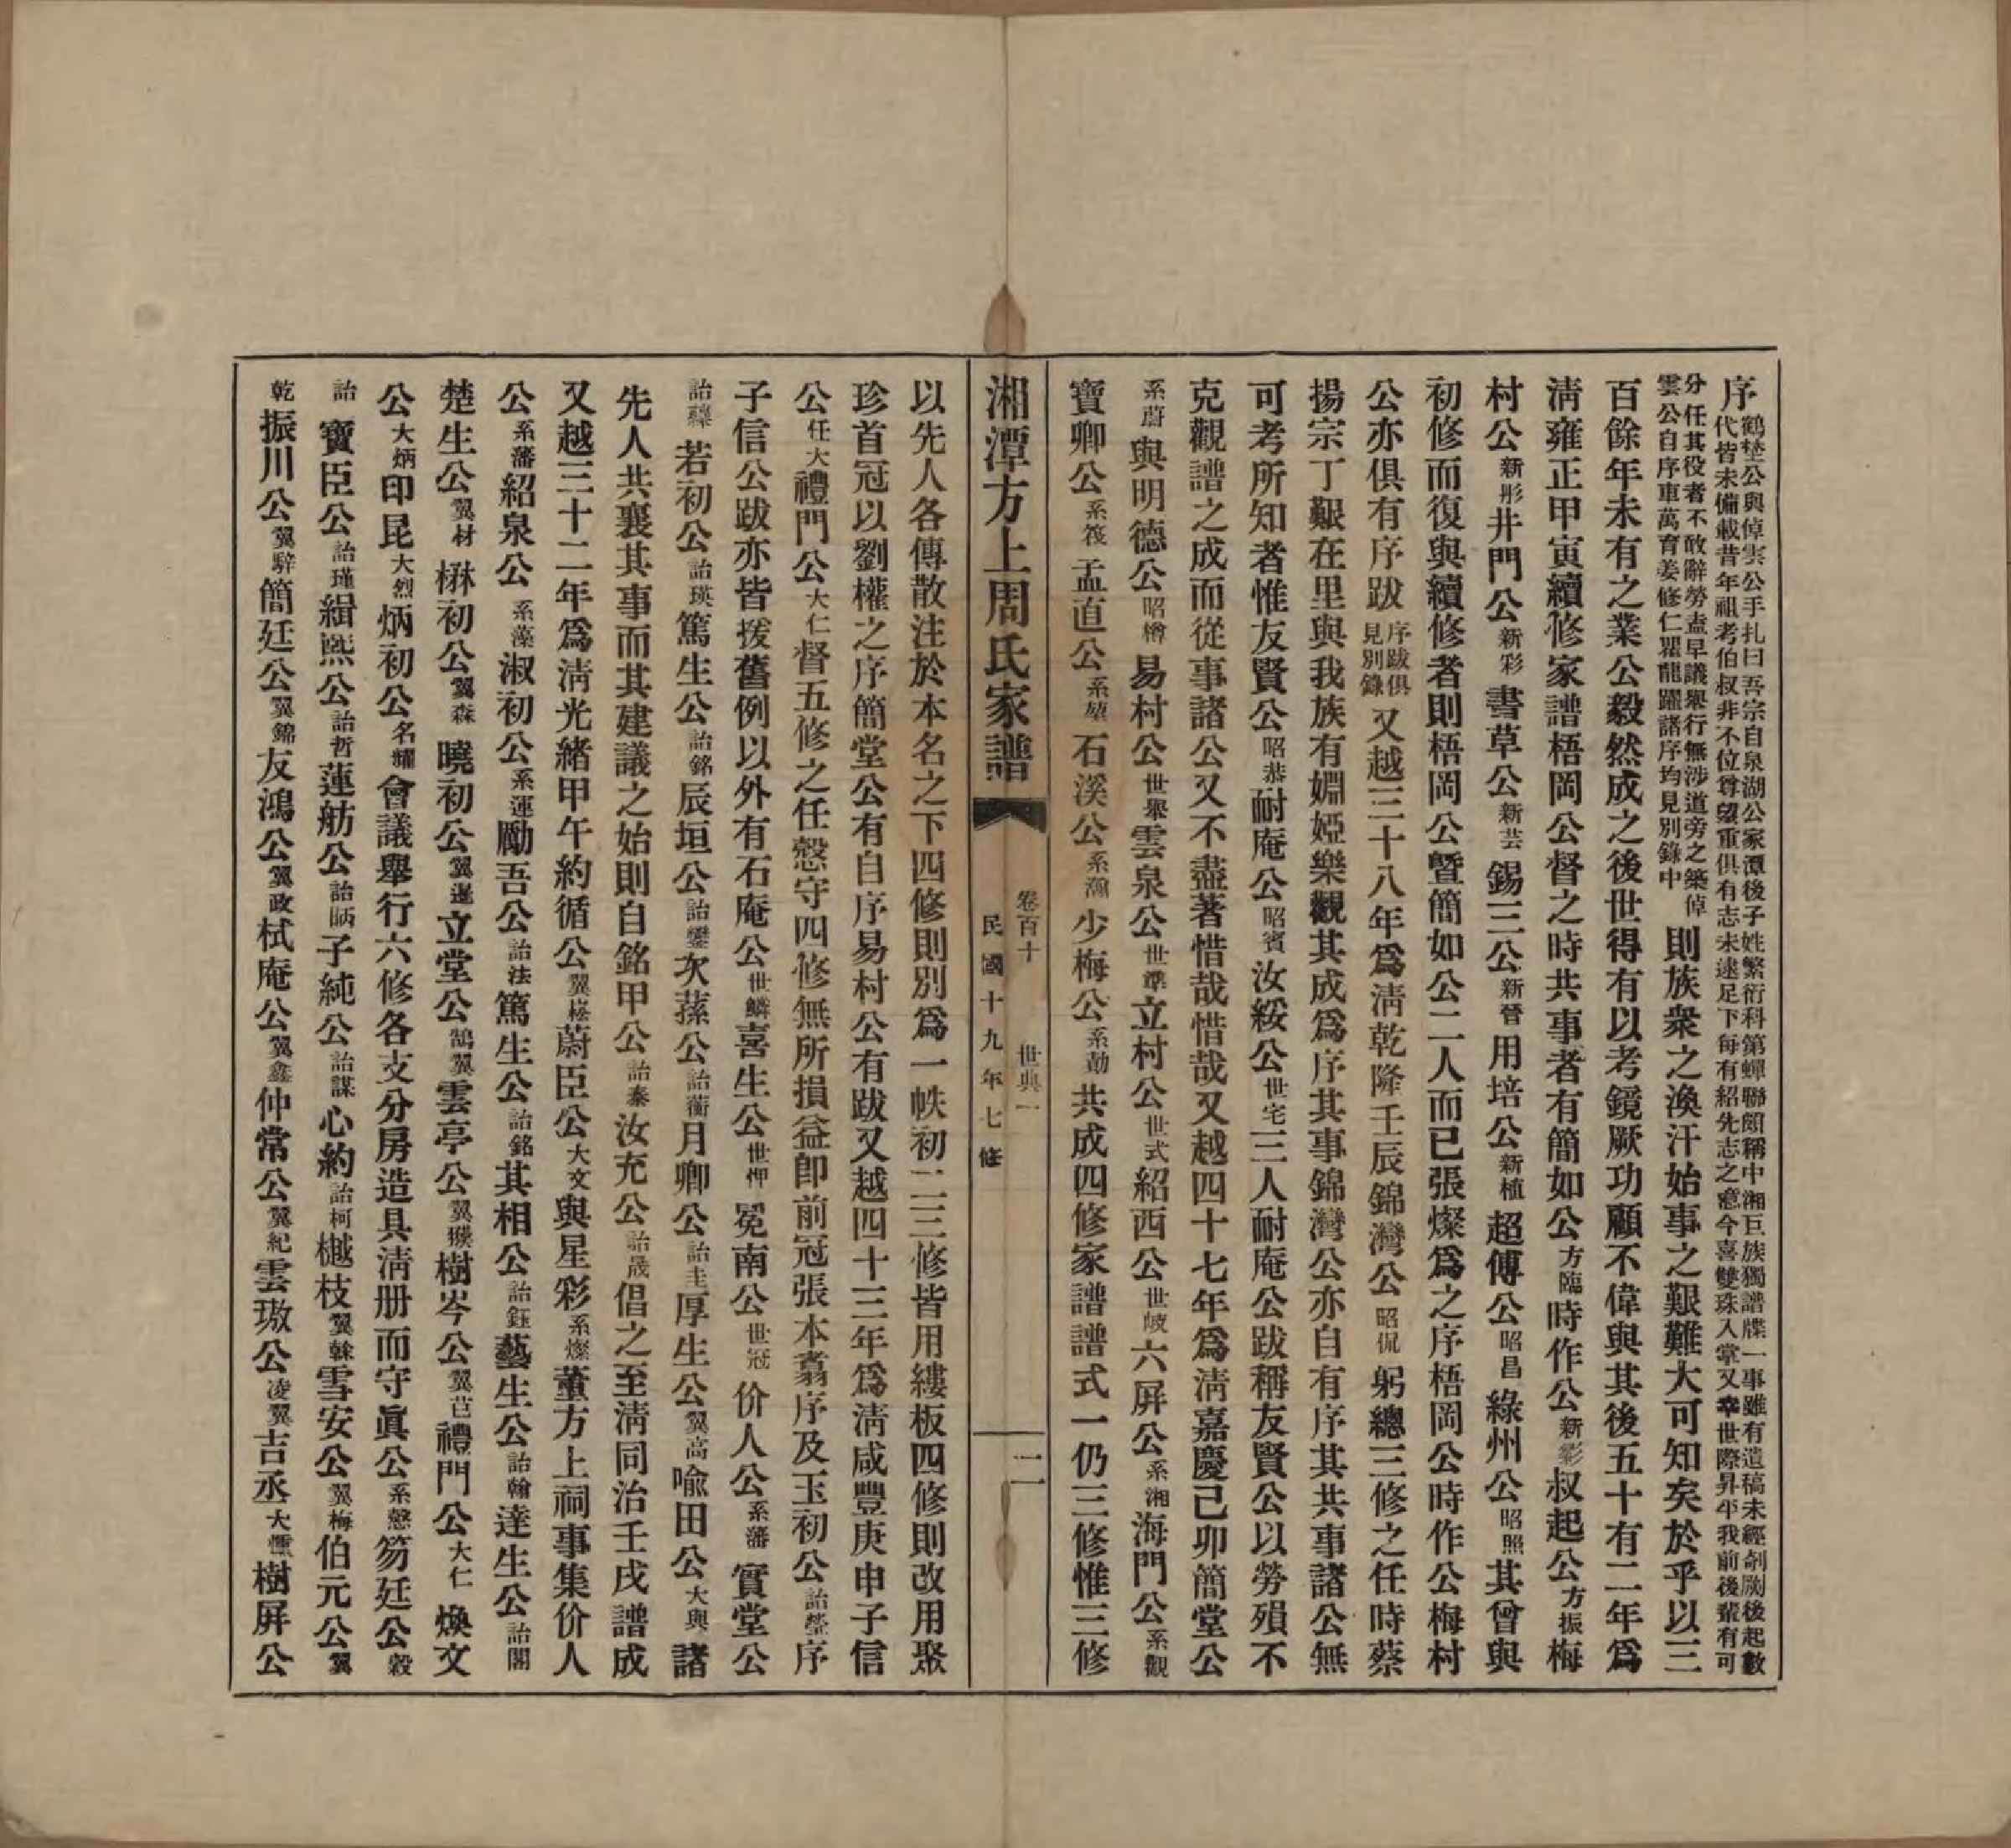 序鶴埜公與倬雲公手扎曰吾宗自泉湖公家潭後子姓繁衍科第蟬聯頗稱中湘巨族獨譜牒一事雖有遺稿未經剞劂後起數
代皆未備載昔年祖考伯叔非不位尊望重俱有志未逮足下每有紹先志之意今喜雙珠入掌又幸世際昇平我前後輩有可
分任其役者不敢辭勞盍早議舉行無涉道旁之築倬
雲公自序車萬育姜修仁瞿龍躍諸序均見別錄中則族衆之渙汗始事之艱難大可知矣於乎以三
百餘年未有之業公毅然成之後世得有以考鏡厥功顧不偉與其後五十有二年爲
清雍正甲寅續修家譜梧岡公督之時共事者有簡如公方臨時作公新彩叔起公方振梅
村公新彤井門公新彩書草公新芸錫三公新晉用培公新植超傅公昭昌綠州公昭照其曾與
初修而復與續修者則梧岡公曁簡如公二人而已張燦爲之序梧岡公時作公梅村
公亦俱有序跋序跋俱見別錄又越三十八年爲淸乾隆壬辰錦灣公昭侃躬總三修之任時蔡
揚宗丁艱在里與我族有婣婭樂觀其成爲序其事錦灣公亦自有序其共事諸公無
可考所知者惟友賢公昭恭耐庵公昭賓汝綏公世宅三人耐庵公跋稱友賢公以勞殞不
克觀譜之成而從事諸公又不盡著惜哉惜哉又越四十七年爲淸嘉慶己卯簡堂公
系蔚與明德公昭樽易村公世擧雲泉公世準立村公世式紹西公世岐六屏公系湘海門公系觀
寶卿公系筏孟直公系堃石溪公系瀚少梅公系勛共成四修家譜譜式一仍三修惟三修
湘潭方上周氏家譜
卷百十 世典一
二
民國十九年七修
以先人各傳散注於本名之下四修則別爲一帙初二三修皆用縷板四修則改用聚
珍首冠以劉權之序簡堂公有自序易村公有跋又越四十三年爲淸咸豐庚申子信
公任大禮門公大仁督五修之任慤守四修無所損益卽前冠張本翥序及玉初公詒瑩序
子信公跋亦皆援舊例以外有石庵公世鱗喜生公世呷冕南公世冠价人公系藩實堂公
詒蘂若初公詒瑛篤生公詒銘辰垣公詒鑾次蓀公詒蘅月卿公詒圭厚生公翼高喩田公大輿諸
先人共襄其事而其建議之始則自銘甲公詒秦汝充公詒晟倡之至淸同治壬戌譜成
又越三十二年爲淸光緒甲午約循公翼崧蔚臣公大文與星彩系燦董方上祠事集价人
公系藩紹泉公系藻淑初公系運勵吾公詒法篤生公詒銘其相公詒鈺藝生公詒翰達生公詒閣
楚生公翼材楙初公翼森曉初公翼暹立堂公鵠翼雲亭公翼騤樹岑公翼芑禮門公大仁煥文
公大炳印昆大烈炳初公名耀會議舉行六修各支分房造具淸册而守眞公系慤笏廷公穀
詒寶臣公詒瑾緝熙公詒哲蓮舫公詒昞子純公詒謀心約詒柯樾枝翼榦雪安公翼梅伯元公翼
乾振川公翼騂簡廷公翼錦友鴻公翼政栻庵公翼鑫仲常公翼紀雲璈公凌翼吉丞大燻樹屏公